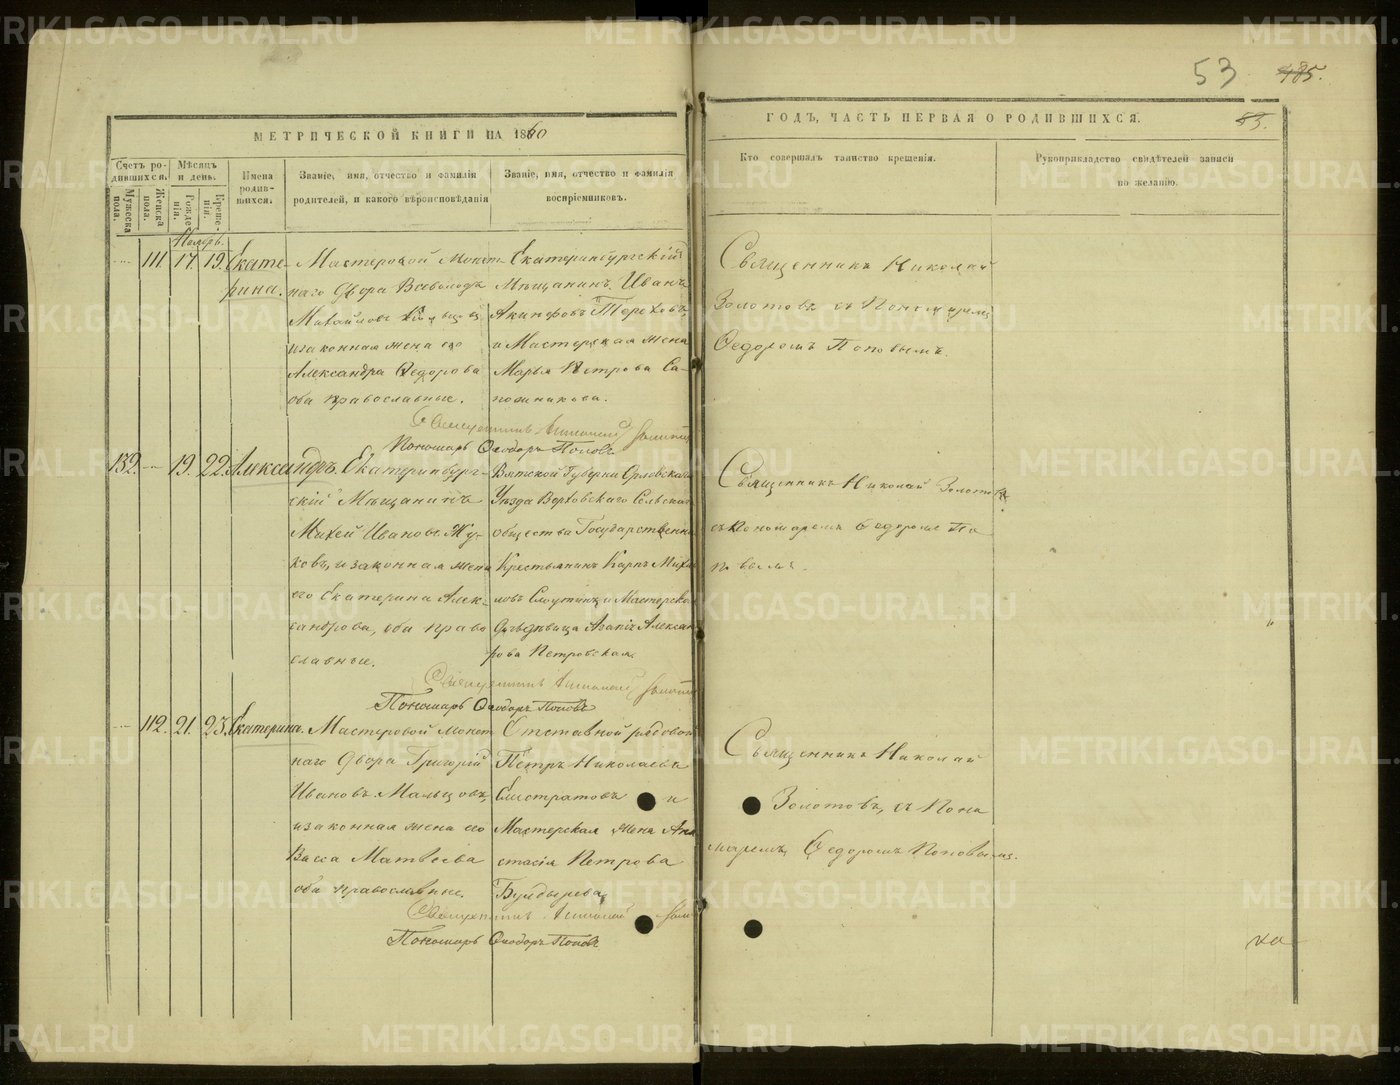 53
185.
МЕТРИЧЕСКОЙ КНИГИ НА 1860
ГОДЪ, ЧАСТЬ ПЕРВАЯ О РОДИВШИХСЯ.
53.
Счетъ ро-
дившихся.
Мужеска пола.
Женска пола.
Мѣсяцъ
и день.
Рожде-
нія.
Креще-
ній.
Имена
родив-
шихся.
Званіе, имя, отчество и фамилія
родителей, и какого вѣроисповѣданія
Званіе, имя, отчество и фамилія
воспріемниковъ.
Кто совершалъ таинство крещенія.
Рукоприкладство свидѣтелей записи
по желанію.
Ноябрь.
111. 17. 19. Екате-
рина.
Мастеровой Монет-
наго Двора Всеволодъ
Михайловъ
и законная жена его
Александра Ѳедорова
оба православные.
Екатеринбургскій
Мѣщанинъ Иванъ
Акинфовъ Тереховъ
и Мастерская жена
Марья Петрова Са-
пожникова.
Священникъ Николай
Золотовъ съ Пономаремъ
Ѳедоромъ Поповымъ.
Священникъ Николай Золотовъ
Пономарь Ѳеодоръ Поповъ
132. 19. 22. Александръ.
Екатеринбург-
скій Мѣщанинъ
Михей Ивановъ Жу-
ковъ, и законная жена
его Екатерина Алек-
сандрова, оба право
славные.
Вятской Губерніи Орловскаго
Уѣзда Верховскаго Сельскаго
общества Государственный
Крестьянинъ Карпъ Михай
ловъ и Мастерская
дѣвица Александ
рова Петровская.
Священникъ Николай Золотовъ
съ Пономаремъ Ѳедоромъ По
повымъ.
Священникъ Николай Золотовъ
Пономарь Ѳеодоръ Поповъ
112. 21. 23. Екатерина.
Мастеровой Монет
наго Двора Григорій
Ивановъ Мальцовъ,
и законная жена его
Васса Матвѣева
оба православные.
Отставной рядовой
Петръ Николаевъ
Елистратовъ и
Мастерская жена Ана
стасія Петрова
Булдырева.
Священникъ Николай
Золотовъ, съ Поно
маремъ Ѳедоромъ Поповымъ.
Священникъ Николай
Пономарь Ѳеодоръ Поповъ
METRIKI.GASO-URAL.RU